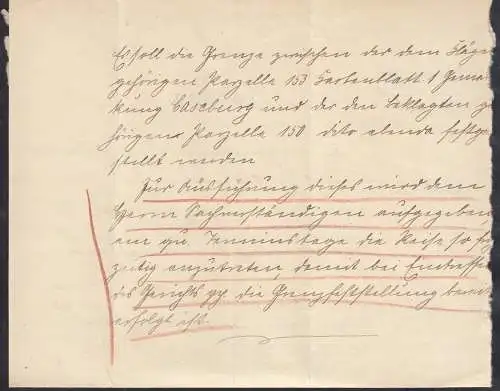 Es soll die Grenze zwischen der dem Kläger
gehörigen Parzelle 153 Kartenblatt 1 Gemar-
kung Caseburg und der den Beklagten ge-
hörigen Parzelle 150 dito ebenda festge-
stellt werden
Zur Ausführung dieses wird dem
Herrn Sachverständigen aufgegeben
am qu. Terminstage die Reise so früh
zeitig anzutreten, damit bei Eintreffen
des Gerichts die Grenzfeststellung bereits
erfolgt ist.